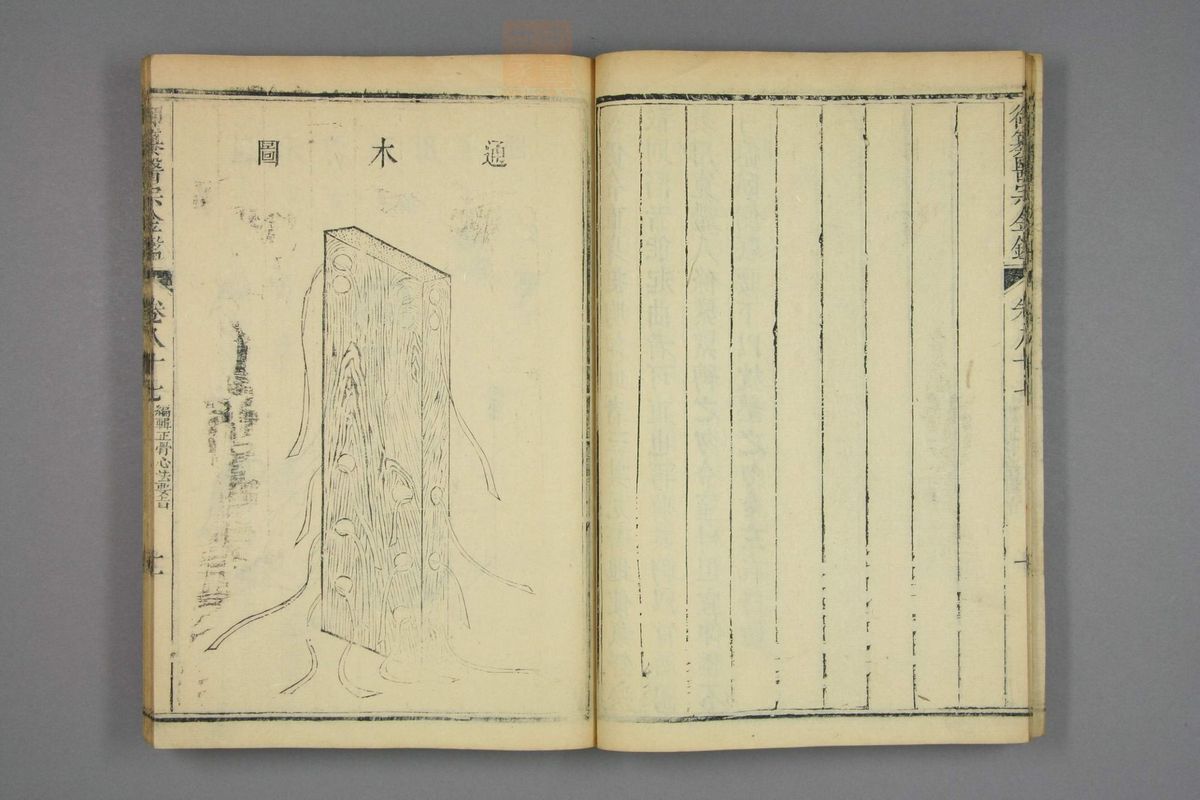 御纂醫宗金鑑
卷八十七
通木圖
御纂醫宗金鑑
卷八十七
編輯正骨心法要旨